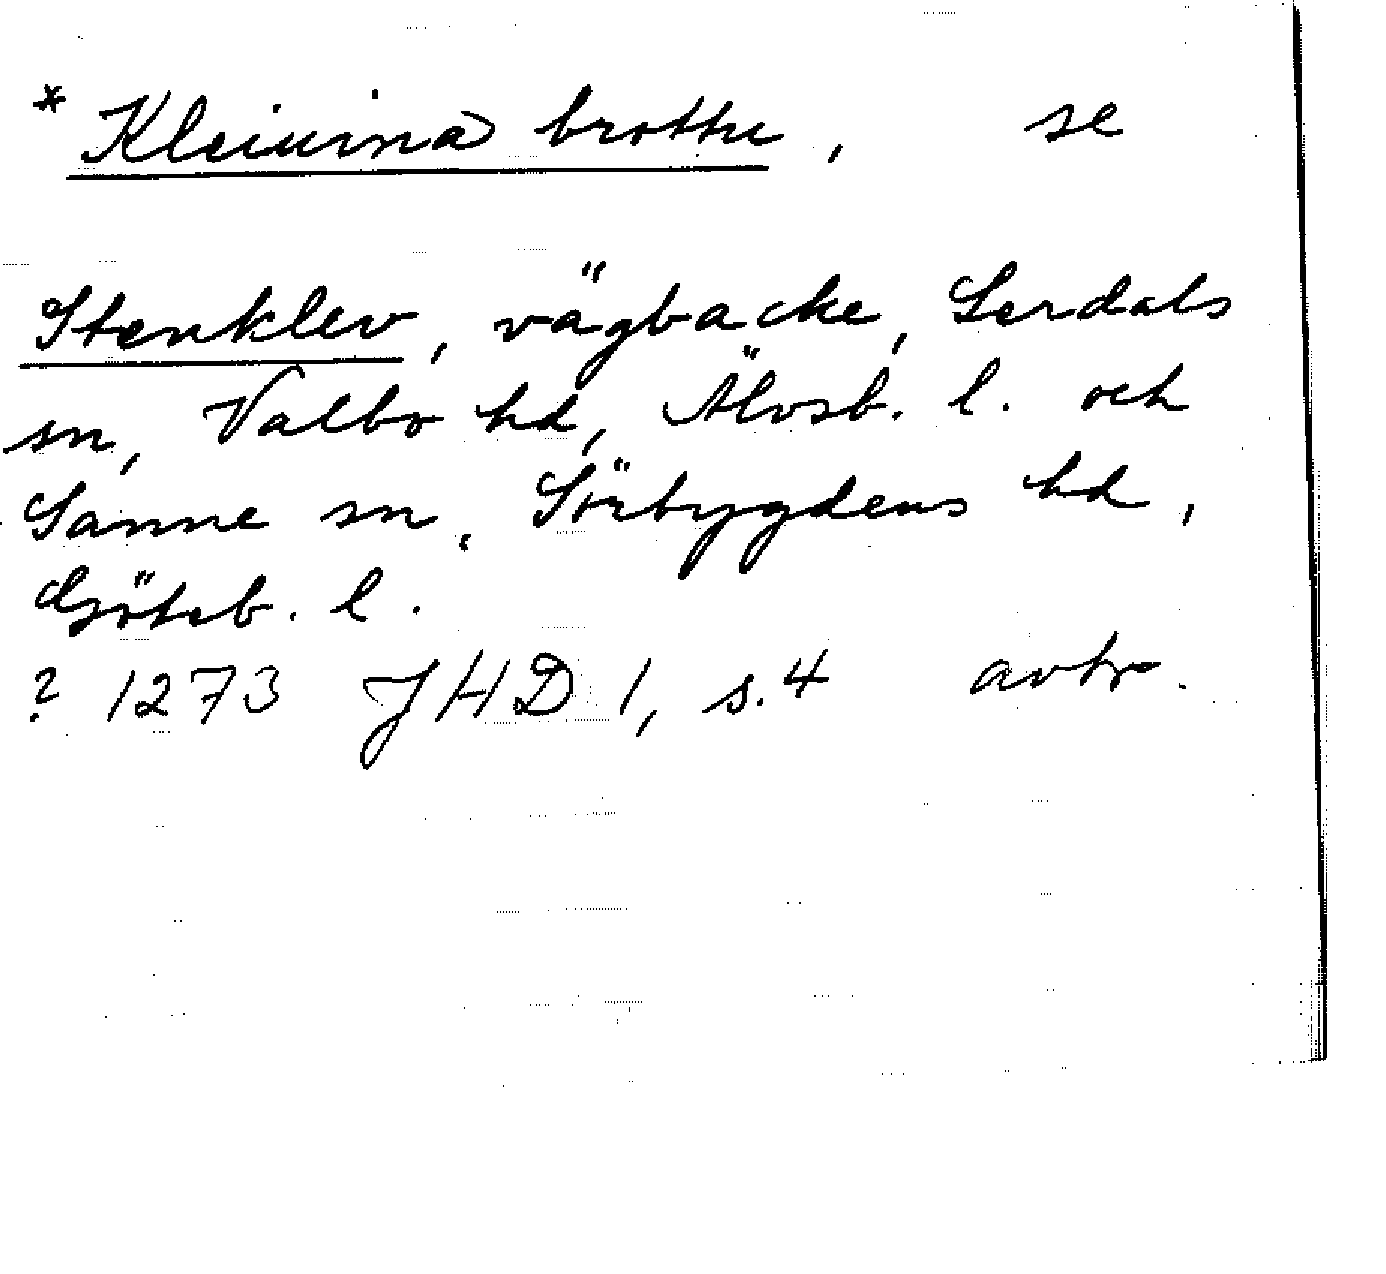 * Kleiuina brottu, se
Stenklev, vägbacke, Lerdals
sn, Valbo hd, Älvsb. l. och
Sanne sn, Sörbygdens hd,
Göteb. l.
? 1273 JHD 1, s. 4 avtr.